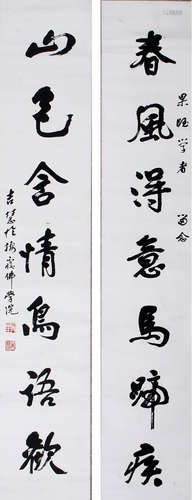 果旺学者 留念
春風得意馬蹄疾
山色含情鳥語歡
吉慧
佛学院